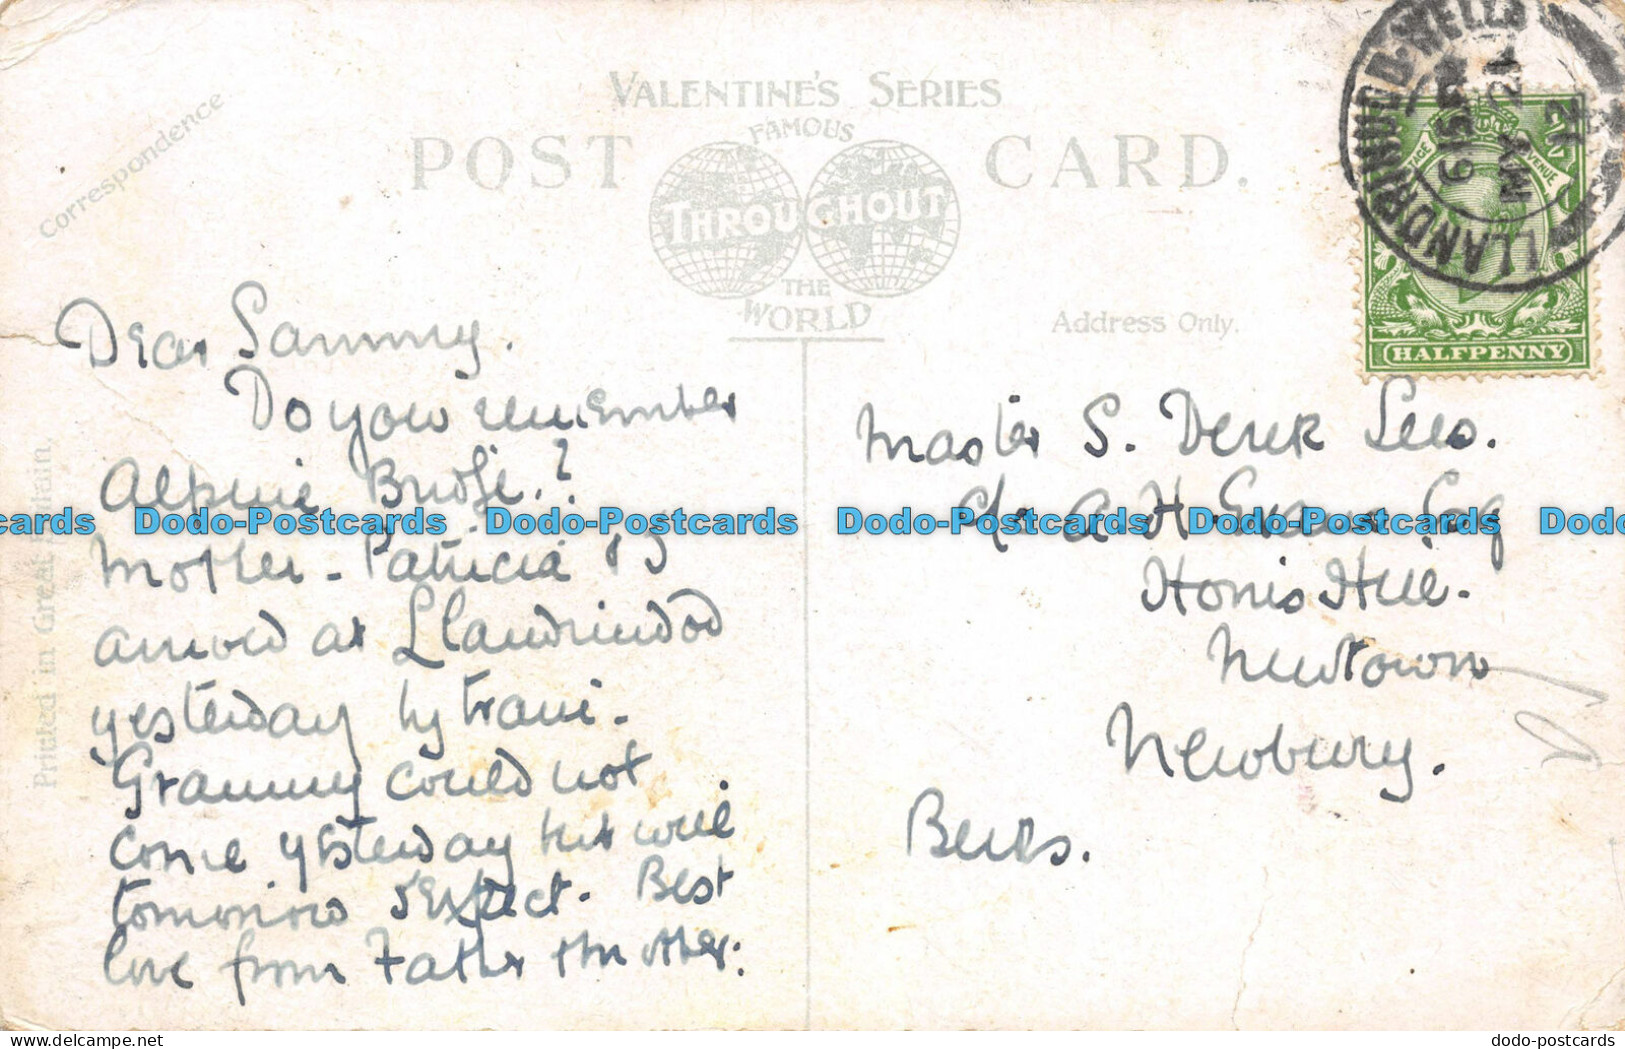 Correspondence
VALENTINE'S SERIES
FAMOUS
POST CARD.
THROUGHOUT
THE
WORLD
Address Only.
Printed in Great Britain.
LLANDRINDOD-WELLS
6 15 PM
MY 21
21
POSTAGE REVENUE
HALFPENNY
Dear Sammy.
Do you remember
Alpine Bridge.?
Mother - Patricia & J
arrived at Llandrindod
yesterday by train.
Granny could not
come yesterday but will
tomorrow I expect. Best
love from Father & Mother.
Master S. Derek Lees.
c/o A H Evans Esq
Newtown
Newbury.
Berks.
cards Dodo-Postcards Dodo-Postcards Dodo-Postcards Dodo-Postcards Dodo
dodo-postcards